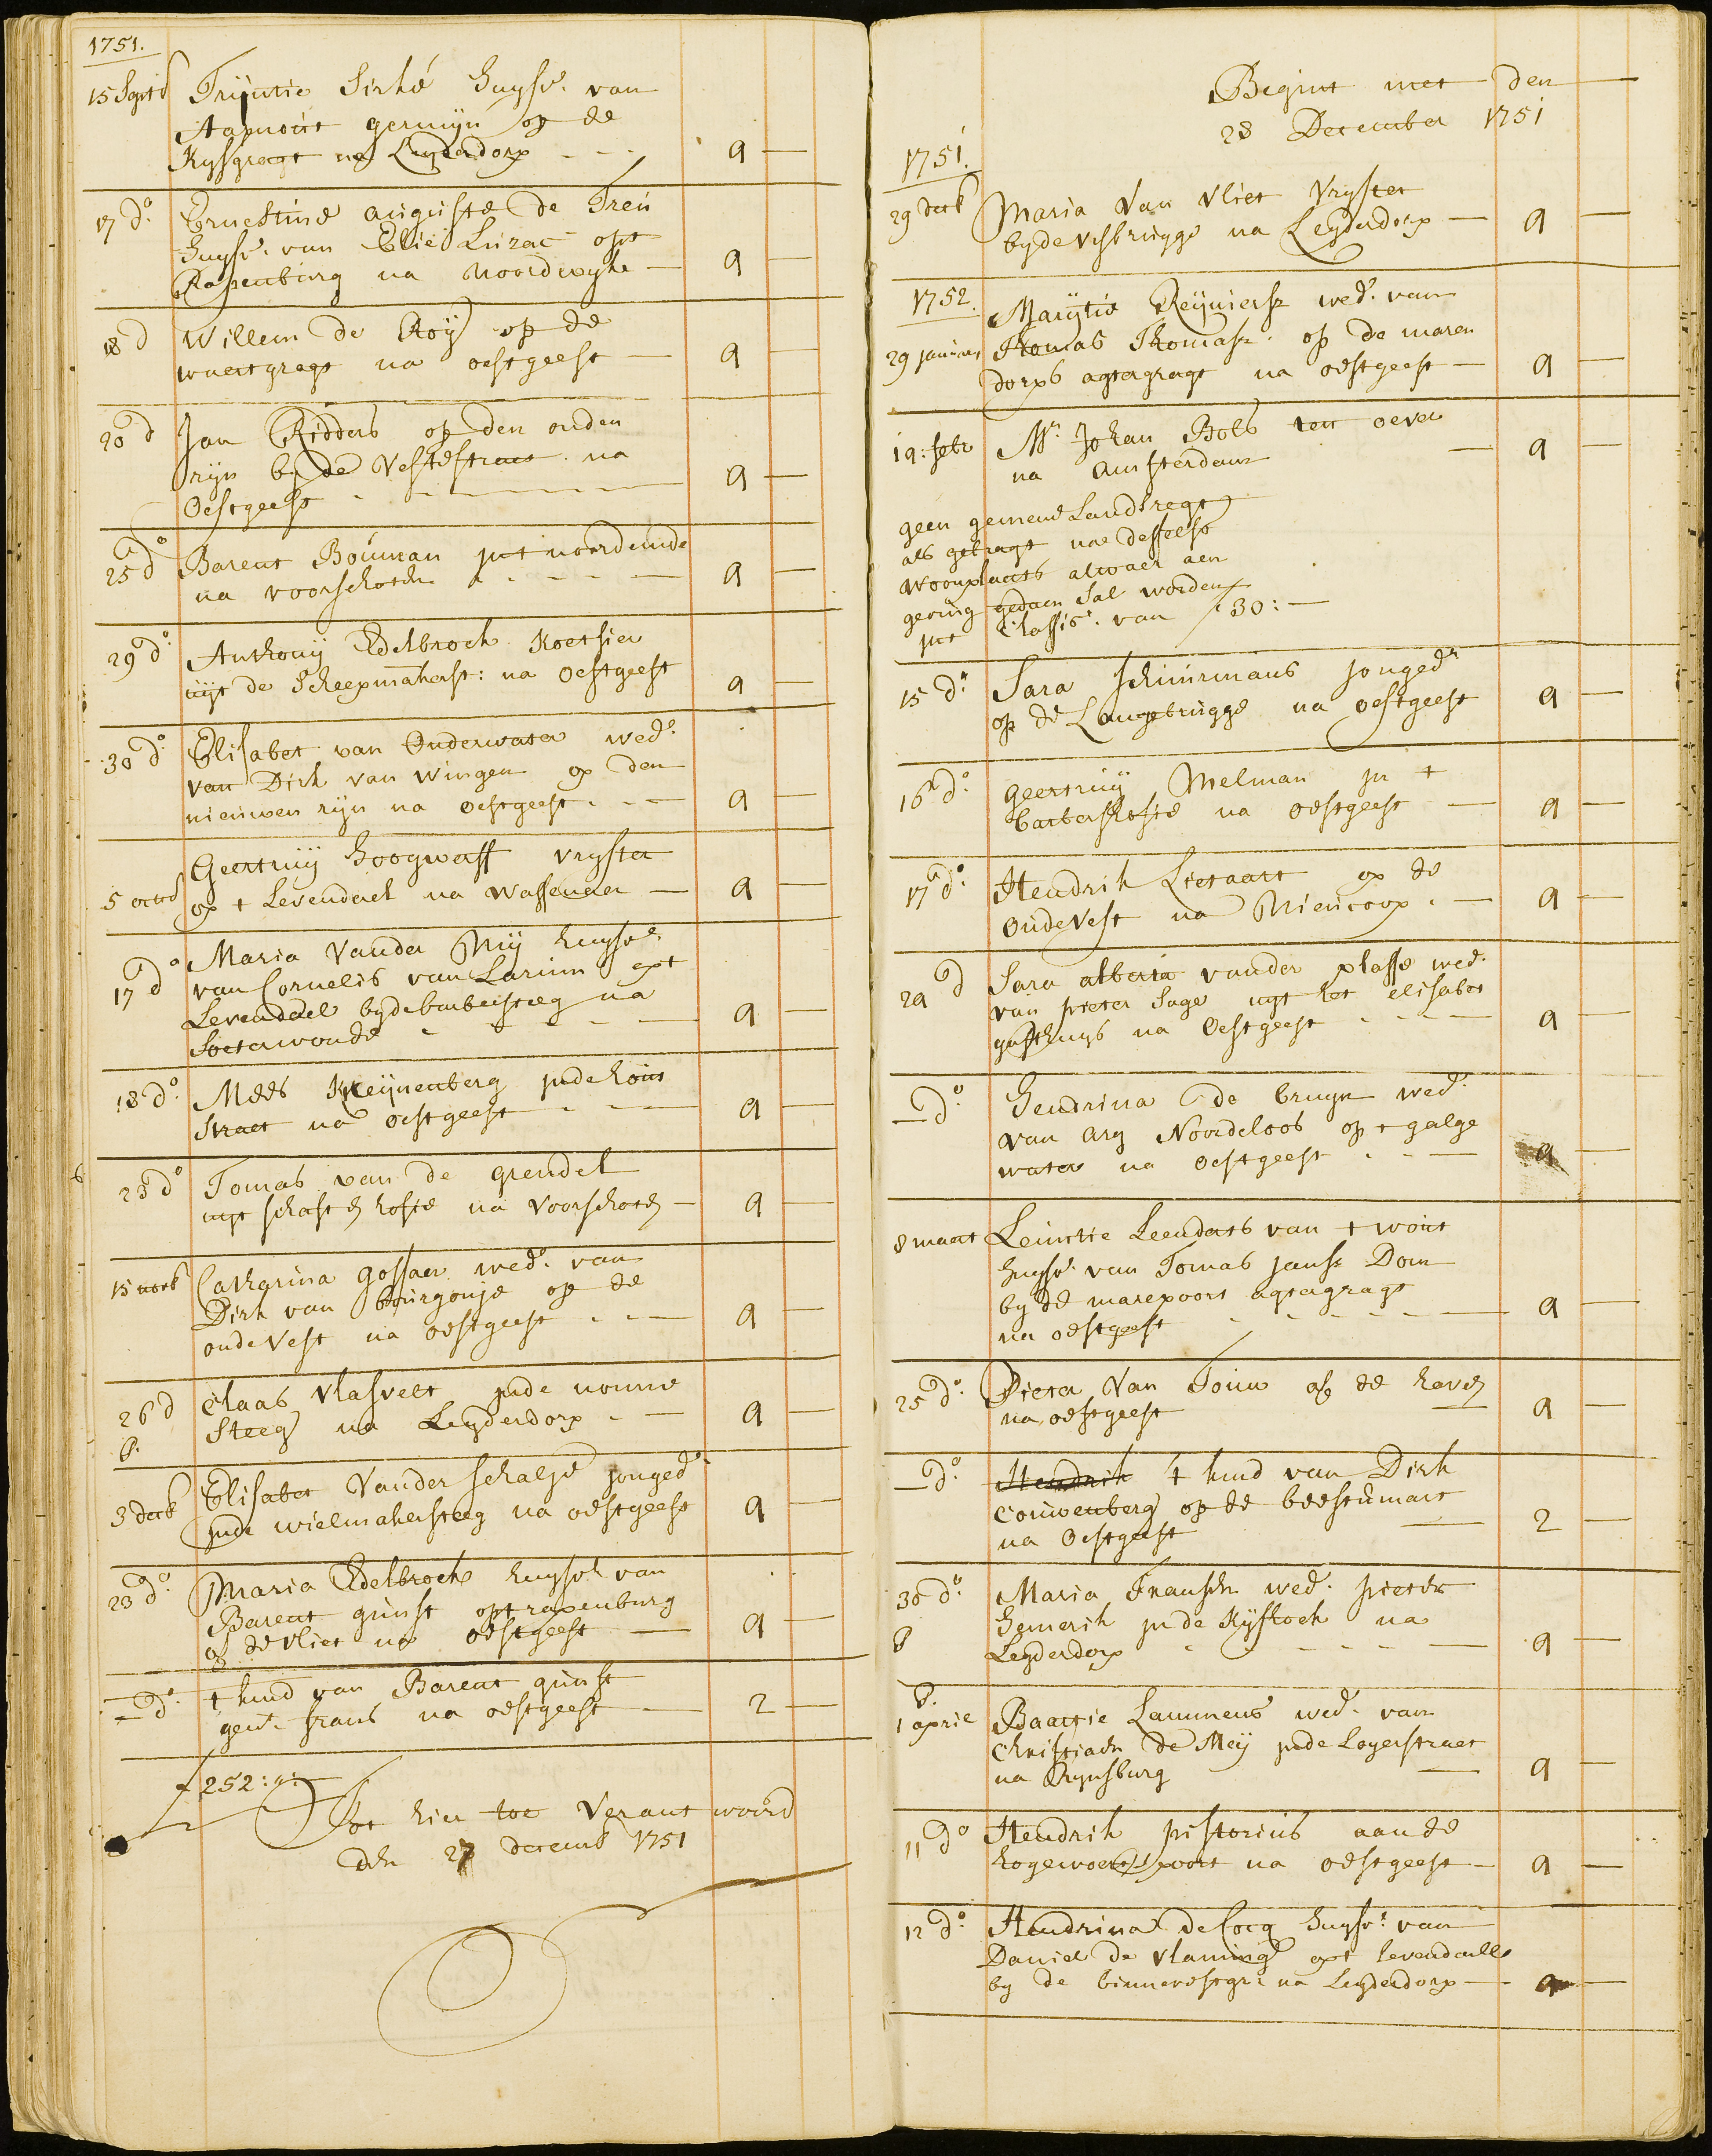 1751.
15 Septb Trijntie Sirké huysv. van
Aarnout germijn op de
Rysgragt na Leyderdorp - - - 9 —
17 do. Ernestine auguste de Treu
huysv. van Elie Luzac opt
Rapenburg na Noordwyke — 9 —
18 d Willem de Roy op de
waertgragt na oestgeest — 9 —
20 d Jan Ridders op den ouden
rijn by de Vestestraet na
Oestgeest - - - 9 —
25 do Barent Bouman int noordeinde
na voorschoten - - - — 9 —
29 do. Anthony Edelbroek koetsier
uijt de Scheepmakerst: na Oestgeest 9 —
30 do. Elisabet van Onderwater wedo.
van Dirk van Wingen op den
nieuwen rijn na oestgeest - - — 9 —
Geertruij Hoogwerff vryster
5 octob op t Levendael na Wassenaer — 9 —
Maria Vander Mij huysvr.
17 do van Cornelis van Larium opt
Levendael byde barbeisteeg na
Soeterwoude - - - — 9 —
18 do. Mees Kreijnenberg inde hout
straet na oestgeest - - — 9 —
23 do Tomas van de grendel
uyt schasten hofie na Voorschoten — 9 —
15 novb Catharina Gossaer wedo. van
Dirk van bourgonje op de
oude Vest na oestgeest - - — 9 —
26 d Claas Vlasvelt inde nonne
P. steeg na Leyderdorp - — 9 —
3 decb Elisabet Vander schalje jonged.
inde wielmakersteeg na oestgeest 9 —
23 do. Maria Edelbroek huysvr van
Barent gunst opt rapenburg
of de vliet na oestgeest — 9 —
— do. t kind van Barent gunst
gent. frans na oestgeest — 2 —
f 252:":—
Tot hier toe Verantwoord
den 27 decemb 1751
Begint met den
28 December 1751
1751.
29 decb Maria Van Vliet Vryster
byde visbrugge na Leyderdorp — 9 —
1752. Marijtie Reijniersz wed. van
29 januwa Thomas Thomasz. op de maren
dorps agtergragt na oestgeest — 9 —
19: febr Mr. Johan Bols ten oever
na Amsterdam — 9 —
geen gemene Landsregt
als gebragt na desselfs
woonplaats alwaer aen
geving gedaen sal worden
int Classis. van f 30:—
15 do. Sara schuurmans jongedr
op de Langebrugge na oestgeest 9 —
16 do. geertruij Melman in t
barbershofie na oestgeest — 9 —
17 do. Hendrik Lietaart op de
oude Vest na Niencoop - — 9 —
29 d Sara alberta vander plasse wed.
van pieter Sage uyt het elisabet
gasthuys na Oestgeest - - - — 9 —
— do. Hendrina de bruyn wed.
van Ary Noordeloos op t galge
water na oestgeest - - — 9 —
8 maert Leuntie Leenderts van t wout
huysvr. van Tomas jansz Dom
by de marepoort agtergragt
na oestgeest - - - — 9 —
25 do. Pieter Van Touw op de haven
na oestgeest — 9 —
— do. Hendrik t kind van Dirk
Couwenberg op de beestemart
na Oestgeest — 2 —
30 do. Maria Fransen wed. pieter
P Hemerik in de Kijfhoek na
Leyderdorp - - - — 9 —
P.
1 april Baartie Lammens wed. van
Christiaen de Meij inde Loyerstraet
na Rynsburg — 9 —
11 do Hendrik pistorius aan de
hogewoertspoort na oestgeest — 9 —
12 do. Hendrina de Cocq huysvr. van
Daniel de vlaming opt levendaell
by de binnevestgr: na Leyderdorp — 9 —